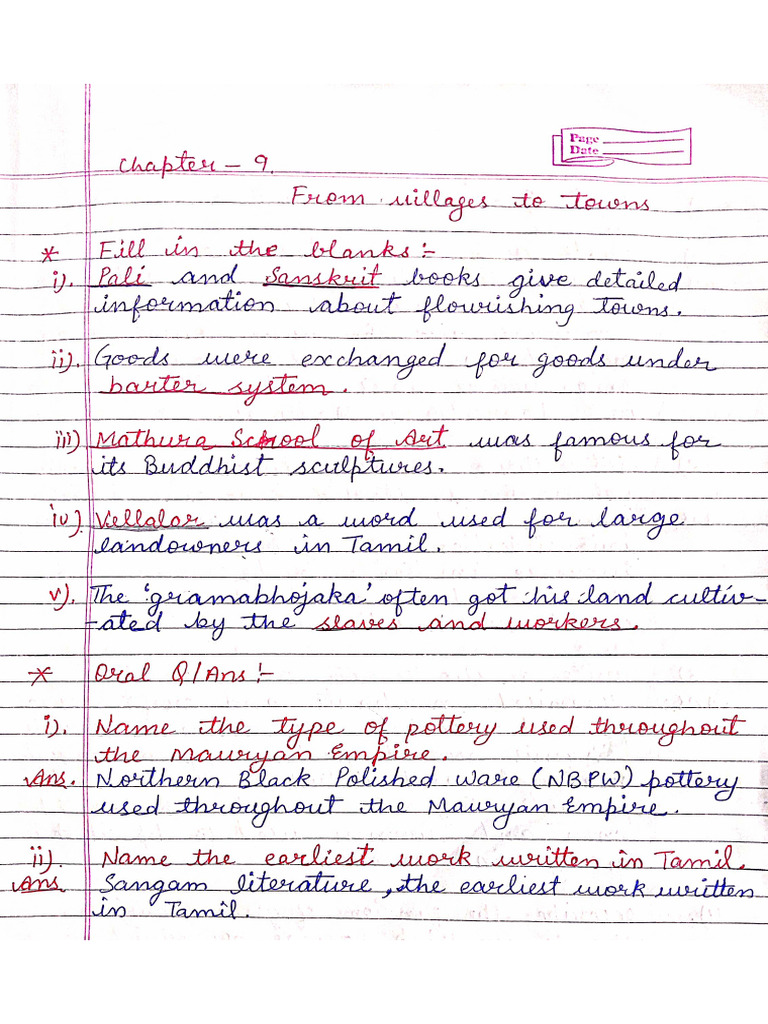 Page
Date
Chapter - 9.
From villages to towns
* Fill in the blanks :-
i). Pali and Sanskrit books give detailed
information about flourishing towns.
ii). Goods were exchanged for goods under
barter system.
iii) Mathura School of Art was famous for
its Buddhist sculptures.
iv). Vellalar was a word used for large
landowners in Tamil.
v). The 'gramabhojaka' often got his land cultiv-
-ated by the slaves and workers.
* Oral Q/Ans :-
i). Name the type of pottery used throughout
the Mauryan Empire.
Ans. Northern Black Polished Ware (NBPW) pottery
used throughout the Mauryan Empire.
ii). Name the earliest work written in Tamil.
Ans Sangam literature, the earliest work written
in Tamil.